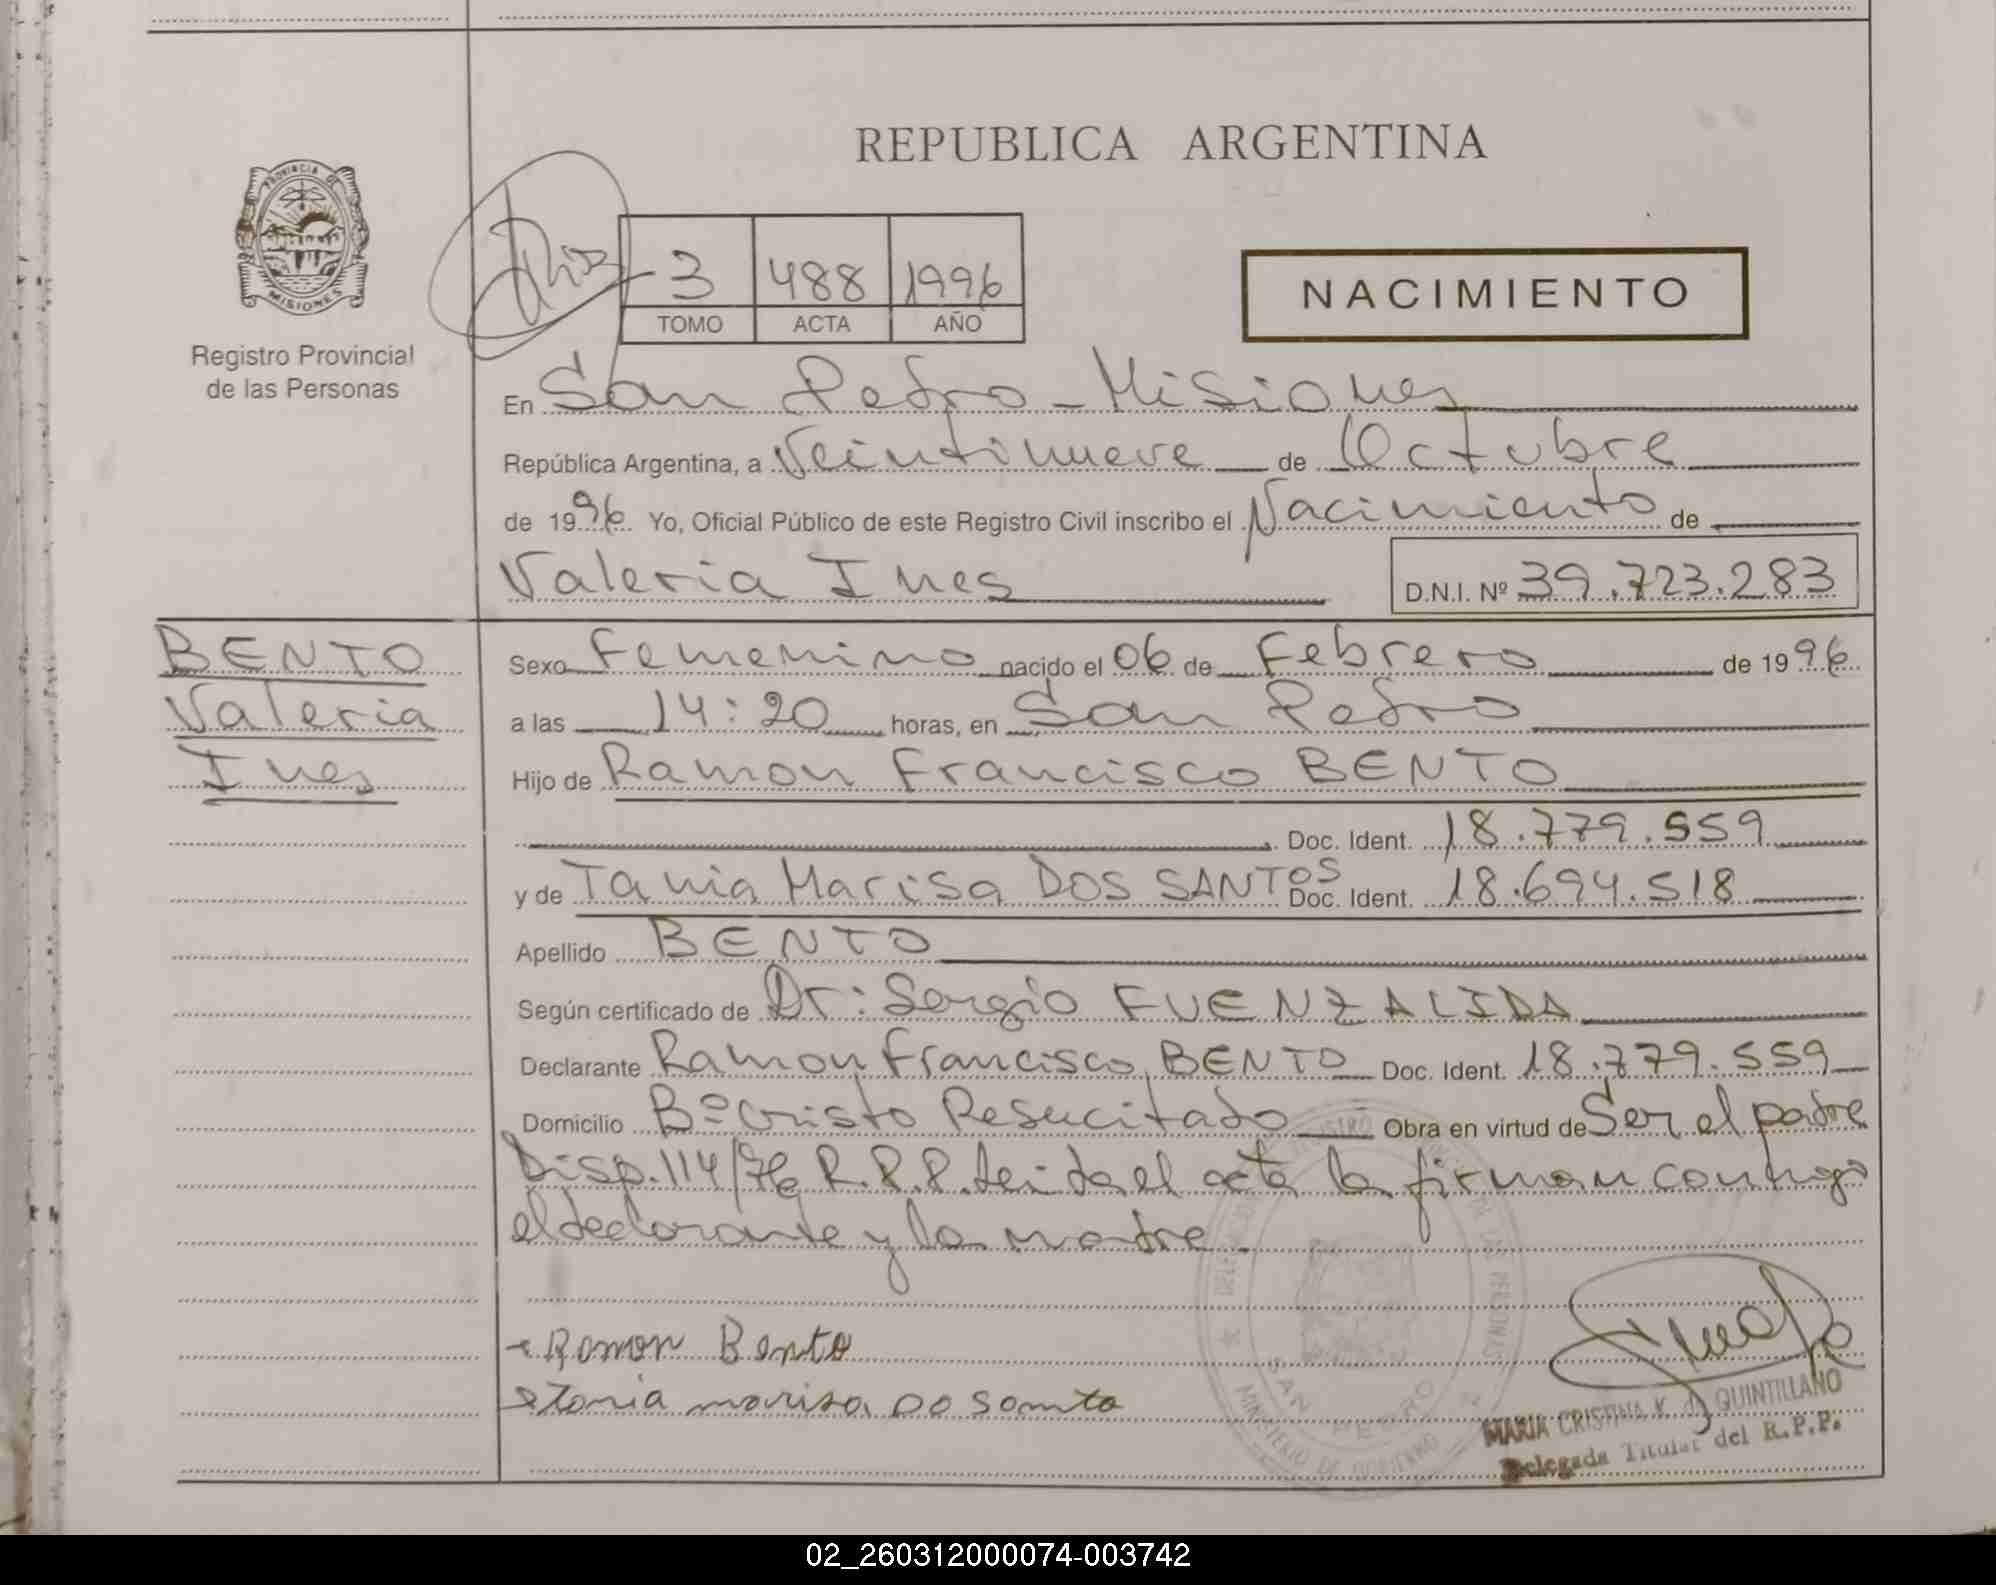 REPUBLICA ARGENTINA
PROVINCIA DE
MISIONES
Registro Provincial
de las Personas
3 488 1996
TOMO ACTA AÑO
NACIMIENTO
En San Pedro - Misiones
República Argentina, a Veintinueve de Octubre
de 1996 Yo, Oficial Público de este Registro Civil inscribo el Nacimiento de
Valeria Ines D.N.I. Nº 39.723.283
BENTO
Valeria
Ines
Sexo Femenino nacido el 06 de Febrero de 1996
a las 14:20 horas, en San Pedro
Hijo de Ramon Francisco BENTO
Doc. Ident. 18.779.559
y de Tania Marisa DOS SANTOS Doc. Ident. 18.694.518
Apellido BENTO
Según certificado de Dr: Sergio FUENZALIDA
Declarante Ramon Francisco BENTO Doc. Ident. 18.779.559
Domicilio Bº Cristo Resucitado Obra en virtud de Ser el padre
Disp. 114/76 R.P.P. Leida el acta la firman conmigo
el declarante y la madre.
Ramon Bento
tania marisa DO Santo
SAN PEDRO
MINISTERIO DE GOBIERNO
DE LAS PERSONAS
MARIA CRISTINA V. de QUINTILLANO
Delegada Titular del R.P.P.
02_260312000074-003742